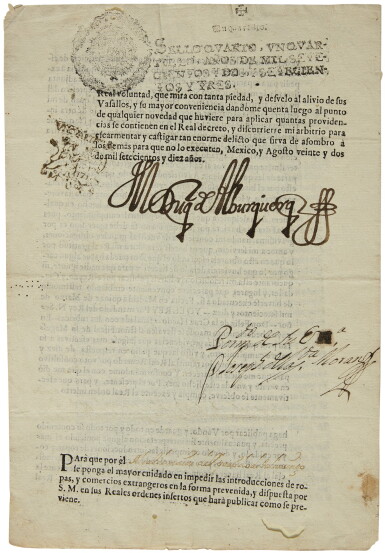 SELLO QVARTO, VN QVAR-
TILLO, AÑOS DE MIL SETE-
CIENTOS Y DOS, Y SETECIEN-
TOS Y TRES.
Real voluntad, que mira con tanta piedad, y desvelo al alivio de sus
Vasallos, y su mayor conveniencia dandome quenta luego al punto
de qualquier novedad que huviere para aplicar quantas providen-
cias se contienen en el Real decreto, y discurriere mi arbitrio para
escarmentar y castigar tan enorme delicto que sirva de asombro á
los demás para que no lo executen, Mexico, y Agosto veinte y dos
de mil setecientos y diez años.
M Duq de Alburquerq
Por mdo de su Exa
PAra que por el
se ponga el mayor cuidado en impedir las introducciones de ro-
pas, y comercios extrangeros en la forma prevenida, y dispuesta por
S. M. en sus Reales ordenes insertos que hará publicar como se pre-
viene.